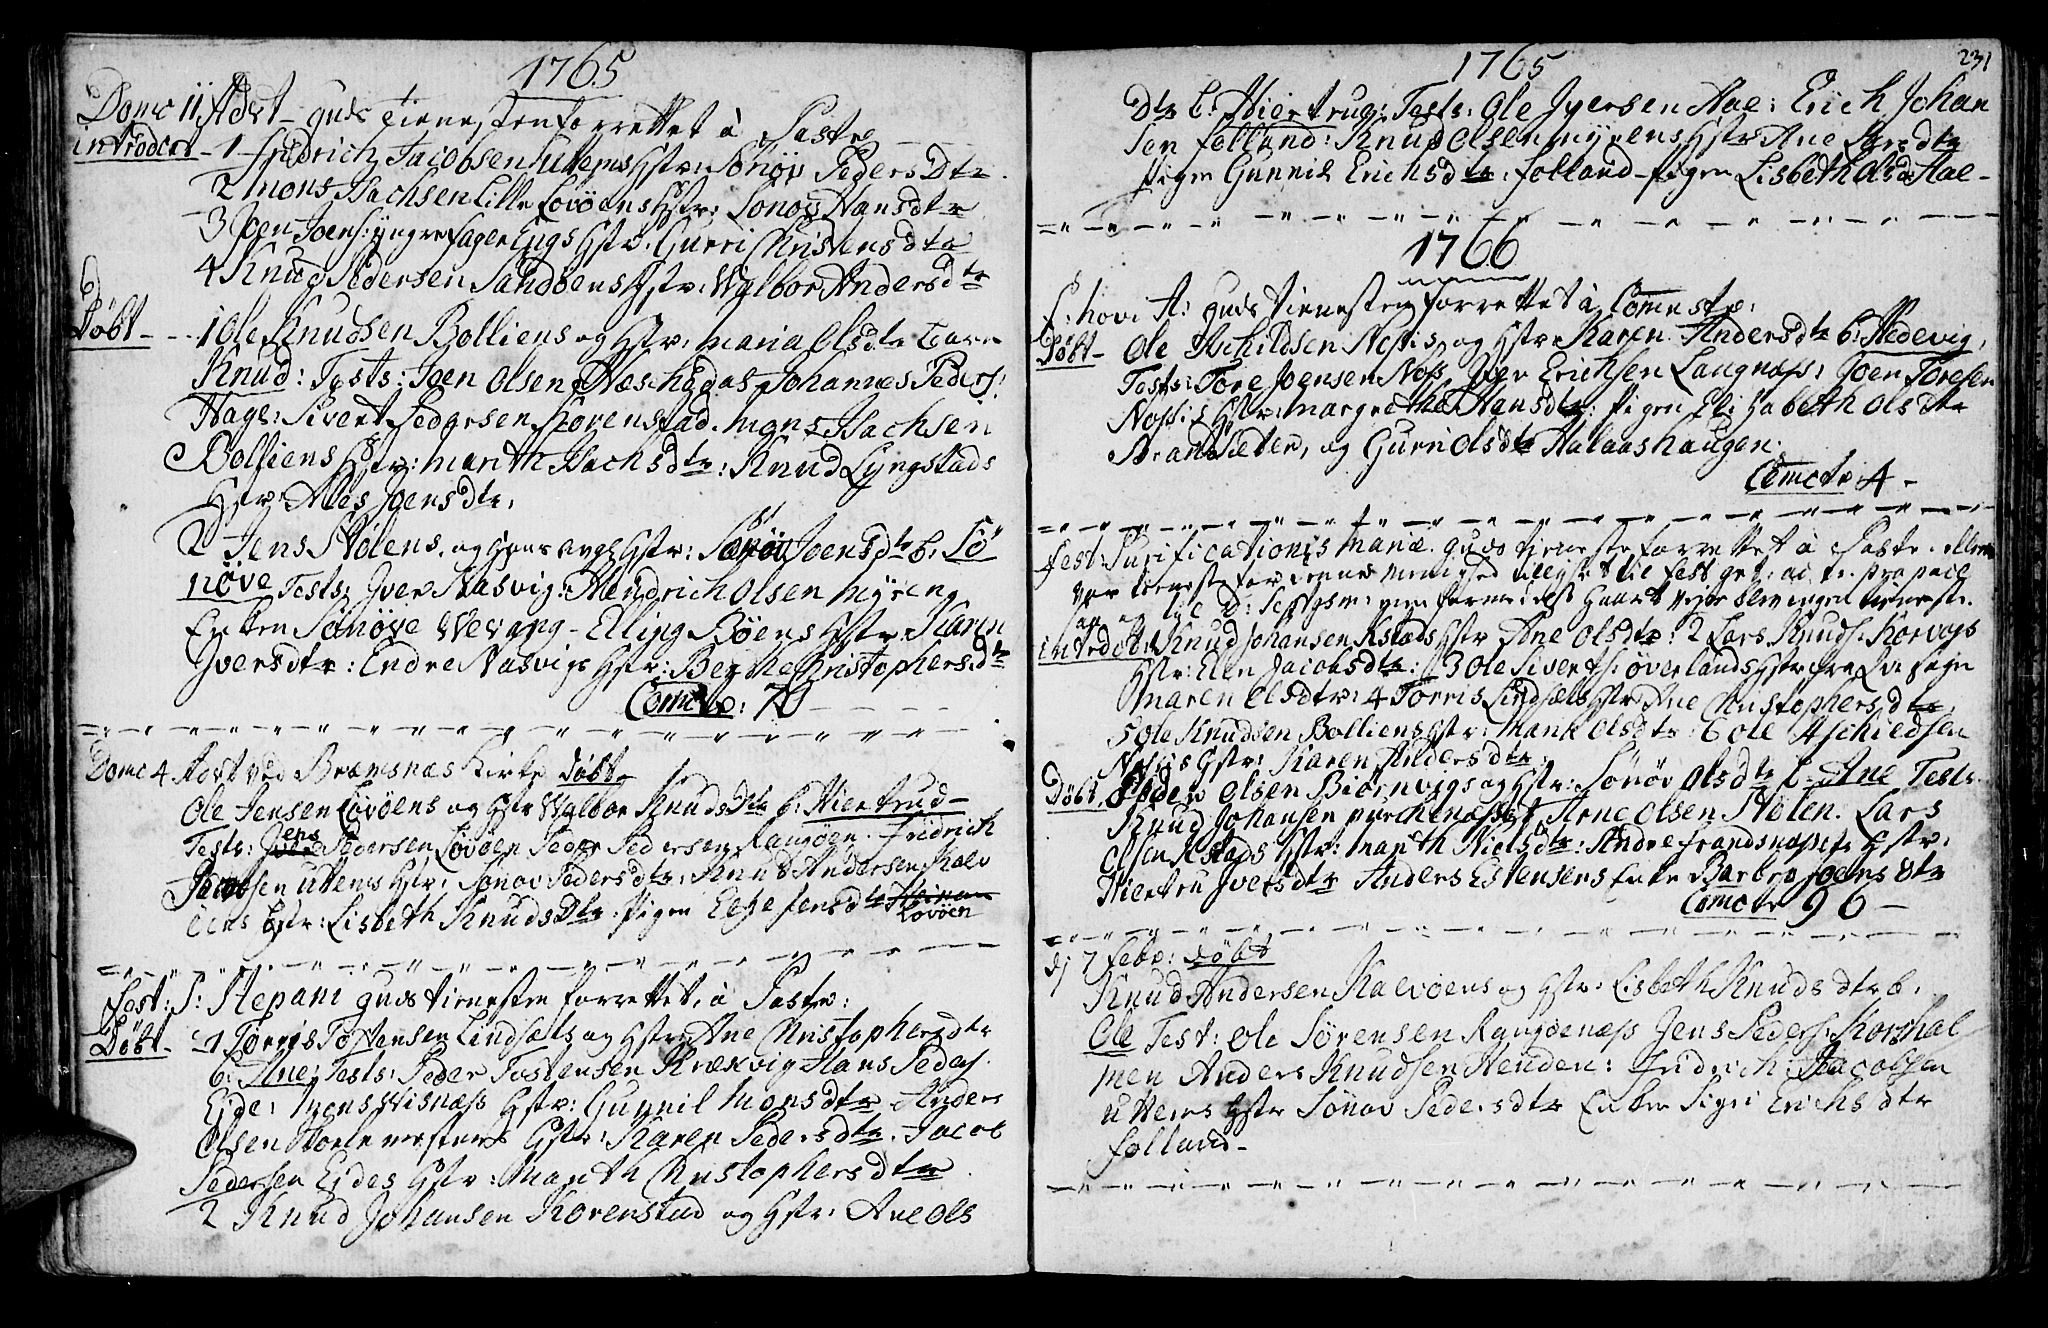 1765
Domc 11 Advt_ guds tienesten forrettet å Pastr
introdcrt - 1 fridrich Jacobsen Uttems Hstr: Sönöv Peders Dtr.
2 mons Isachsen Lille Lovöens Hstr: Sönöv Hansdtr
3 Joen Joens: yngre fager Engs Hstr. Gurri Christensdtr
4 Knud Pedersen Sandöens Hstr: Walbor Andersdtr
Döbt - 1 Ole Knudsen Bolliens og Hstr: maria Olsdtr barn
Knud: Tests: Joen Olsen Johannes Peders:
Hage: Sivert Pedersen Korenstad. mons Isachsen
Bolliens Hstr: marith Isachsdtr: Knud Lyngstads
Hstr Ales Joensdtr,
2 Jens Stölens. og Hstr: Sönöv Joensdtr b: Sö
növe Tests: Iver Nasvig: Hendrich Olsen myreng
Enken Sönöve Wevang - Elling Böens Hstr Karen
Iversdtr: Endre Nasvigs Hstr: Berthe Christophersdtr
Comctr: 70
Domc 4. Advt ved Bremsnæs Kirke döbt
Ole Jensen Lovöens og Hstr Walbor Knuds Dtr b: Hiertrud -
Tests: Jens Pedersen Lovöen Peder Pedersen Rangöen. fridrich
Jacobsen Uttems Hstr: Sönov Pedersdtr: Knud Andersen Kalv
öens Hstr: Lisbeth Knuds Dtr: Pigen Jensdtr
Lovöen
Fest: S: Stepani guds tienesten forrettet å Pastr:
Döbt - 1 Törris Tostensen Lindsæts og Hstr Ane Christophersdtr
b: Ane: Tests: Peder Tostensen Krækvig Hans Peders:
Eide: mons Visnæss Hstr: Gunnil Monsdtr Anders
Olsen Skolemesters Hstr: Karen Pedersdtr. Jacob
Pedersen Eides Hstr: Marith Christophersdtr.
2 Knud Johansen Korenstad og Hstr: Ane Ols
1765
231
Dtr b: Hiertrug: Tests: Ole Iversen Aae: Erich Johan
sen folland: Knud Olsen myrens Hstr Ane Larsdtr
Pigen Gunnil Erichsdtr: folland - Pigen Lisbeth Olsd Aae -
1766
F: novi A: guds tienesten forrettet å Comestr:
Döbt - Ole Aschildsen Nossis og Hstr Karen Andersdtr b: Hedevig,
Tests: Tore Joensen Noss Iver Erichsen Langnæss: Joen Toresen
Nossis Hstr: margrethe Hansdtr: Pigen Elizabeth Olsdtr
Brandsæter, og Gurri Olsdtr Aalaashaugen.
Comctr 4 -
fest: Purificationis Mariæ. guds tieneste forrettet å Pastr.
var tieneste for denne Menighed tillyst til fest
D: Sexagsm: blev ingen tieneste.
introdct: Knud Johansen Kstads Hstr Ane Olsdtr: 2 Lars Knuds: Korvogs
Hstr: Elen Jacobsdtr: 3 Ole Siverts: överlands Hstr
maren Olsdtr: 4 Törris Lindsæts Hstr Ane Christophersdtr
5 Ole Knudsen Bolliens Hstr: Marit Olsdtr: 6 Ole Aschieldsen
Nossis Hstr: Karen Andersdtr:
Döbt. Peder Olsen Biörnvigs og Hstr: Sönöv Olsdtr b: Ane Tests:
Knud Johansen Arne Olsen Stölen. Lars
Olsen Kstads Hstr: marith Nielsdtr: Andre frandsnæssets Hstr:
Hiertru Iversdtr Anders Estensens Enke Barbro Joensdtr
Comctr 96 -
d 7 febr: döbt
Knud Andersen Kalvöens og Hstr: Lisbeth Knuds dtr b:
Ole Test: Ole Sörensen Rangöenæss Jens Peders: Korshal
men Anders Knudsen Henden: fridrich: Jacobsen
Uttems Hstr Sönov Pedersdtr Enken Sigri Erichsdtr
folland -